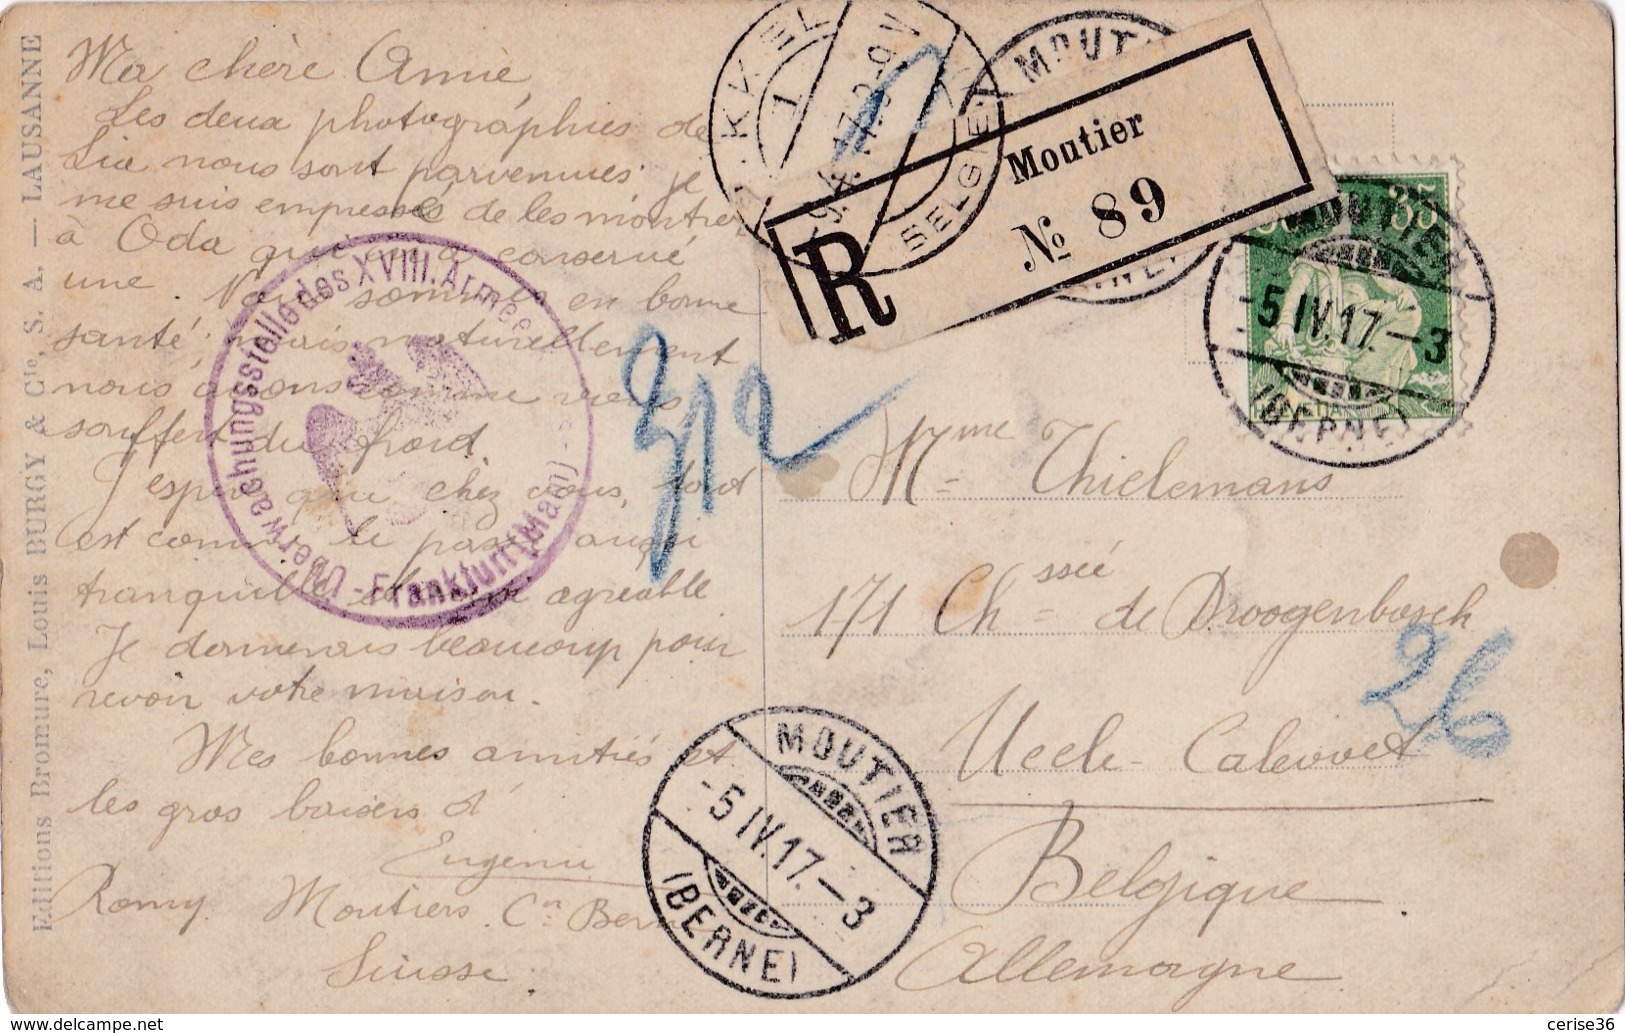 Ma chère Amie,
Les deux photographies de
Lia nous sont parvenues, je
me suis empressée de les montrer
à Oda qui en a conservé
une. Nous sommes en bonne
santé; mais naturellement
nous avons comme vous
souffert du froid.
J'espère que chez vous, tout
est comme le passé aussi
tranquille et agréable
Je donnerais beaucoup pour
revoir votre maison.
Mes bonnes amitiés et
les gros baisers d'
Eugénie
Romy. Moutiers. Cn Berne
Suisse.
Editions Bromure, Louis BURGY & Cie, S. A. — LAUSANNE
Überwachungsstelle des XVIII. Armee
- Frankfurt (Main) -
1
BELGIE
MOUTIER
R
Moutier
№ 89
35
HELVETIA
MOUTIER
-5 IV. 17. — 3
(BERNE)
312
Mme Thielemans
171 Chssée de Droogenbosch
Uccle - Calevoet
Belgique
Allemagne
26
MOUTIER
-5 IV. 17. — 3
(BERNE)
delcampe.net
cerise36